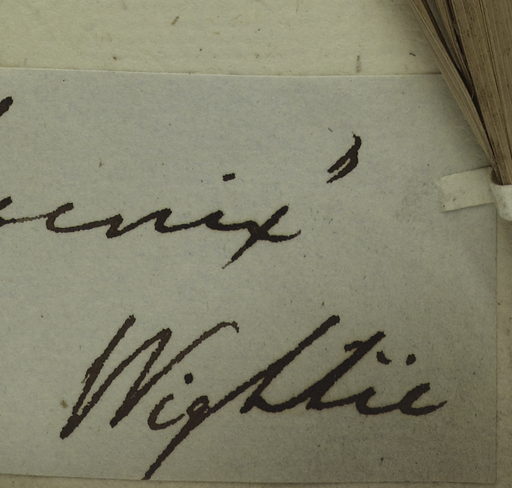 oenix'
Wightii